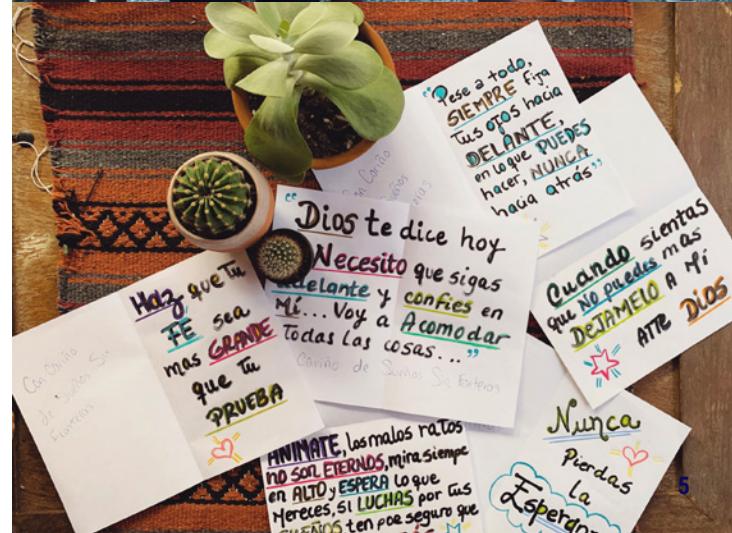 "Pese a todo,
SIEMPRE fija
tus ojos hacia
DELANTE,
en lo que PUEDES
hacer, NUNCA
hacia atrás"
Con Cariño
"Dios te dice hoy
Necesito que sigas
adelante y confies en
Mí... Voy a Acomodar
Todas las cosas..."
Cariño de Sueños Sin Fronteras
Cuando sientas
que No puedes mas
DEJAMELO A Mí
ATTE DIOS
Haz que Tu
FÉ sea
mas GRANDE
que Tu
PRUEBA
Con Cariño
de Sueños Sin
Fronteras
ANIMATE, los malos ratos
no son ETERNOS, mira siempe
en ALTO y ESPERA lo que
Mereces, si LUCHAS por tus
SUEÑOS ten poe seguro que
Nunca
Pierdas
La
Esperanz
5